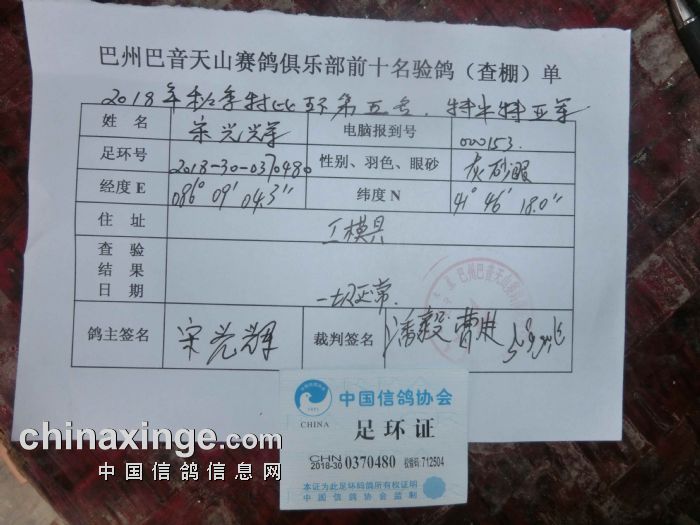 巴州巴音天山赛鸽俱乐部前十名验鸽（查棚）单
2018年秋季特比环第五名．特半特亚军
姓 名 宋光辉 电脑报到号 000153.
足环号 2018-30-0370480 性别、羽色、眼砂 灰砂眼
经度E 086° 09′ 04.3″ 纬度N 41° 46′ 18.0″
住 址 工模具
查 验
结 果
日 期 一切正常.
鸽主签名 宋光辉 裁判签名 潘毅
巴州巴音天山赛鸽
中国信鸽协会
CHINA 足环证
CHN
2018-30 0370480 校验码:712504
本证为此足环码鸽所有权证明
中国信鸽协会监制
chinaxinge.com
中国信鸽信息网